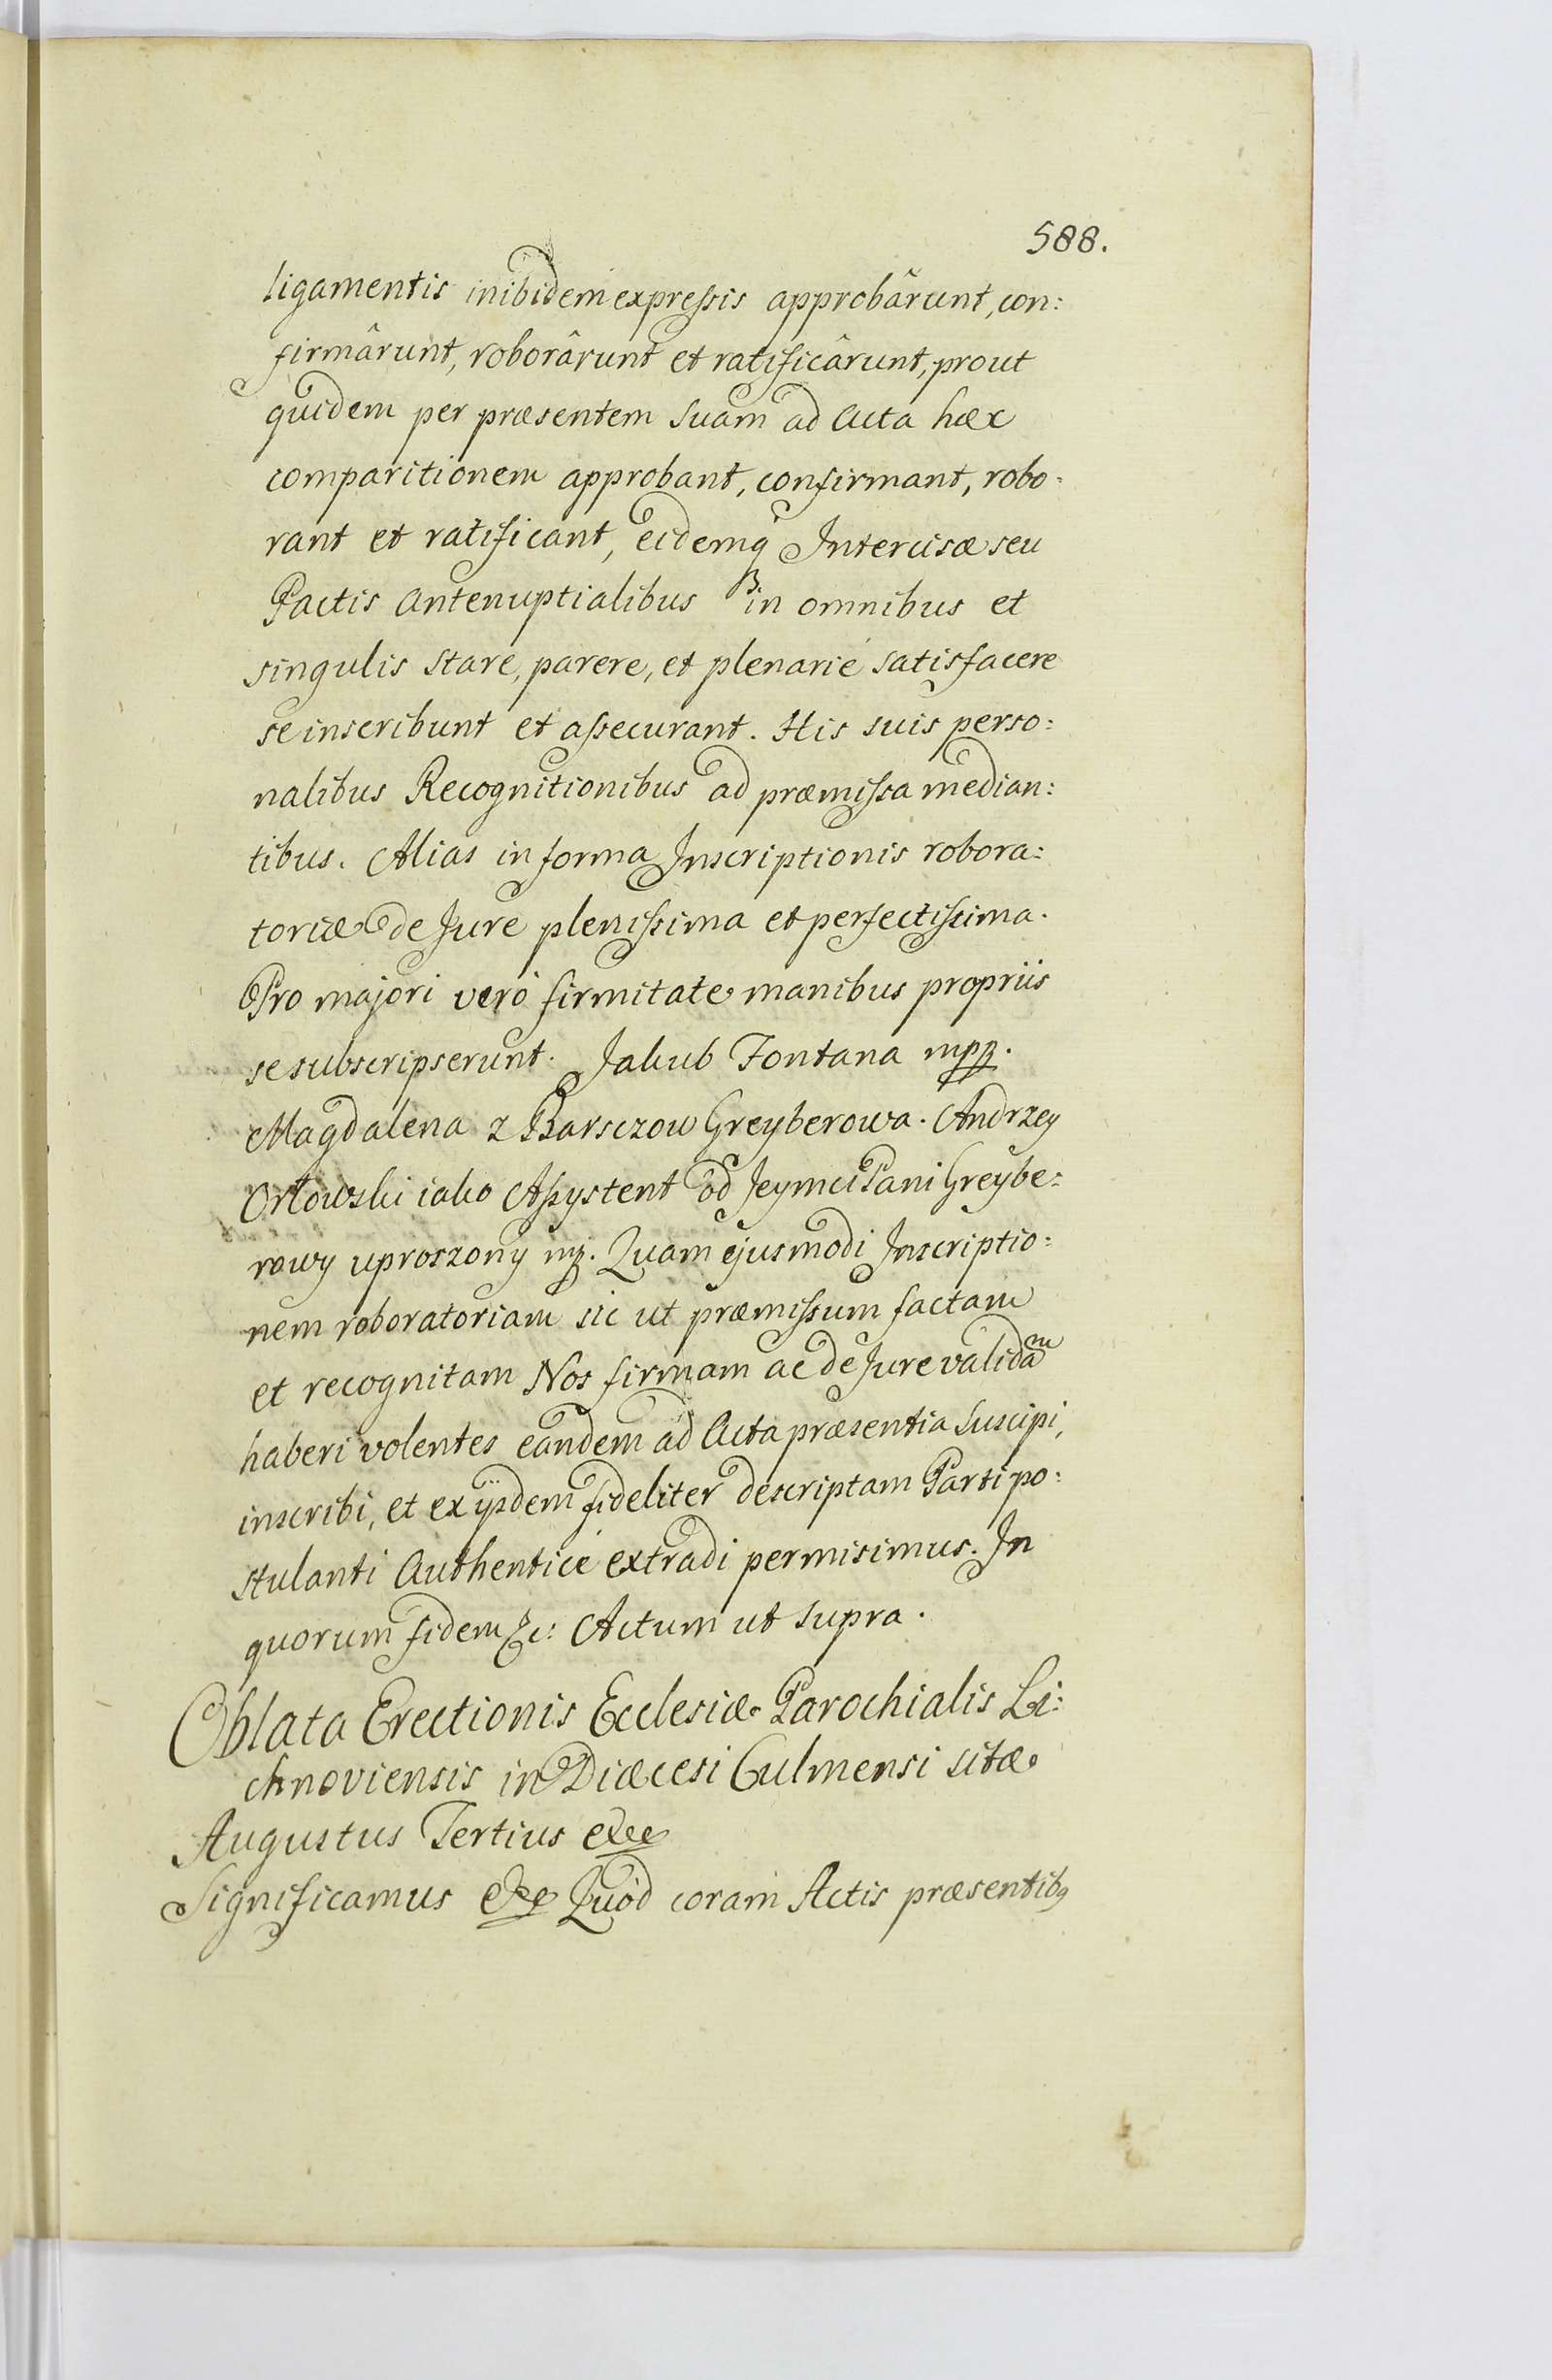 588.
ligamentis inibidem expressis approbârunt, con:
firmârunt, roborârunt et ratificârunt, prout
quidem per præsentem suam ad Acta hæc
comparitionem approbant, confirmant, robo:
rant et ratificant, eidemq Intercisæ seu
Pactis Antenuptialibus in omnibus et
singulis stare, parere, et plenariè satisfacere
se inscribunt et assecurant. His suis perso:
nalibus Recognitionibus ad præmissa median:
tibus. Alias in forma Inscriptionis robora:
toriæ de Jure plenissima et perfectissima.
Pro majori verò firmitate manibus propriis
se subscripserunt. Jakub Fontana mpp.
Magdalena z Barsczow Greyberowa. Andrzey
Orłowski iako Assystent od Jeymci Pani Greybe:
rowy uproszony mp. Quam ejusmodi Inscriptio:
nem roboratoriam sic ut præmissum factam
et recognitam Nos firmam ac de Jure validam
haberi volentes eandem ad Acta præsentia suscipi,
inscribi, et ex ijsdem fideliter descriptam Parti po:
stulanti Authenticè extradi permisimus. In
quorum fidem &c: Actum ut supra.
Oblata Erectionis Ecclesiæ Parochialis Li:
chnoviensis in Diæcesi Culmensi sitæ
Augustus Tertius &c
Significamus &c Quòd coram Actis præsentibq